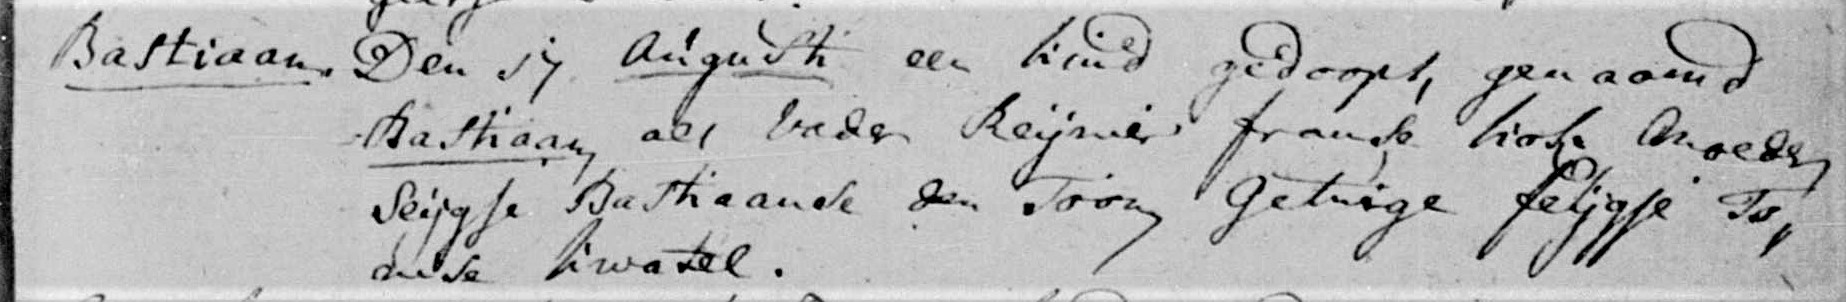 Bastiaan. Den 17 Augusti een kind gedoopt, genaamd
Bastiaan als Vader Reijnier franse Moeder
Seijgse Bastiaanse den Toom Getuige feijgje Ts,
anse kwatel.